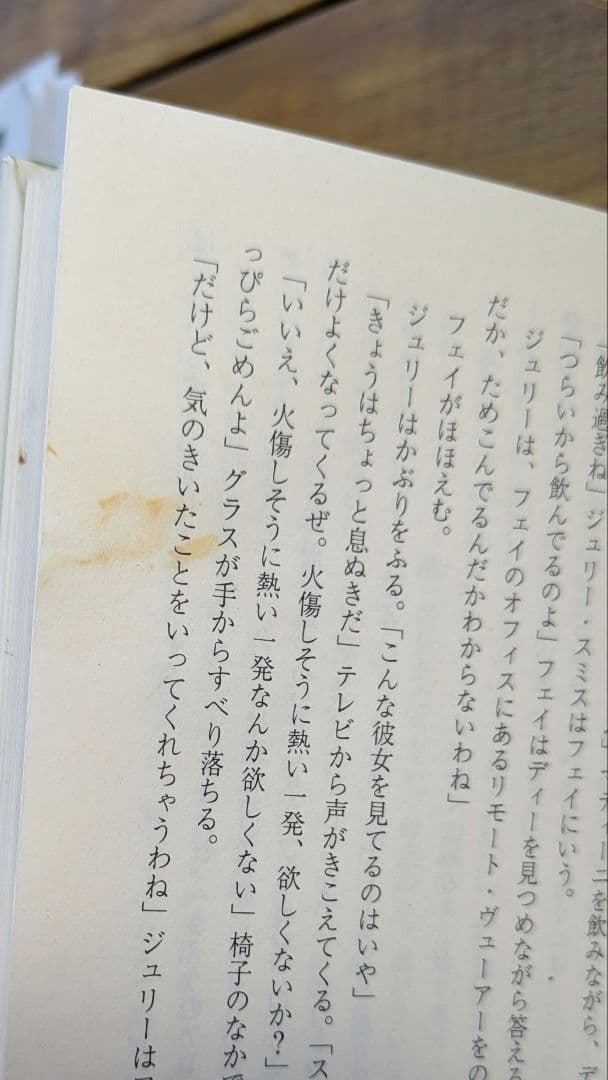 」マティーニを飲みながら、デ
「飲み過ぎね」ジュリー・スミスはフェイにいう。
「つらいから飲んでるのよ」フェイはディーを見つめながら答える
ジュリーは、フェイのオフィスにあるリモート・ヴューアーをの
だか、ためこんでるんだかわからないわね」
フェイがほほえむ。
ジュリーはかぶりをふる。「こんな彼女を見てるのはいや」
「きょうはちょっと息ぬきだ」テレビから声がきこえてくる。「ス
だけよくなってくるぜ。火傷しそうに熱い一発、欲しくないか？」
「いいえ、火傷しそうに熱い一発なんか欲しくない」椅子のなかで
っぴらごめんよ」グラスが手からすべり落ちる。
「だけど、気のきいたことをいってくれちゃうわね」ジュリーは